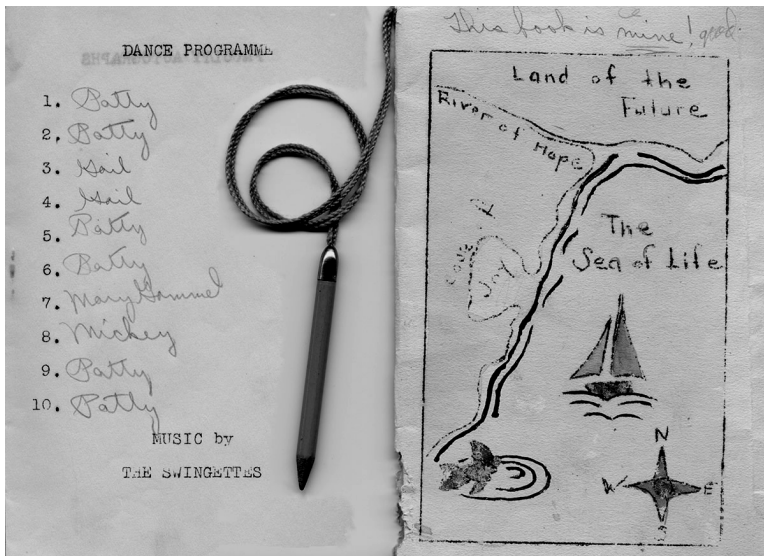 DANCE PROGRAMME
1. Patty
2. Patty
3. Gail
4. Gail
5. Patty
6. Patty
7. Mary Gammel
8. Mickey
9. Patty
10. Patty
MUSIC by
THE SWINGETTES
This book is mine!
Land of the
Future
River of Hope
Cove of
Joy
The
Sea of Life
N
W E
S